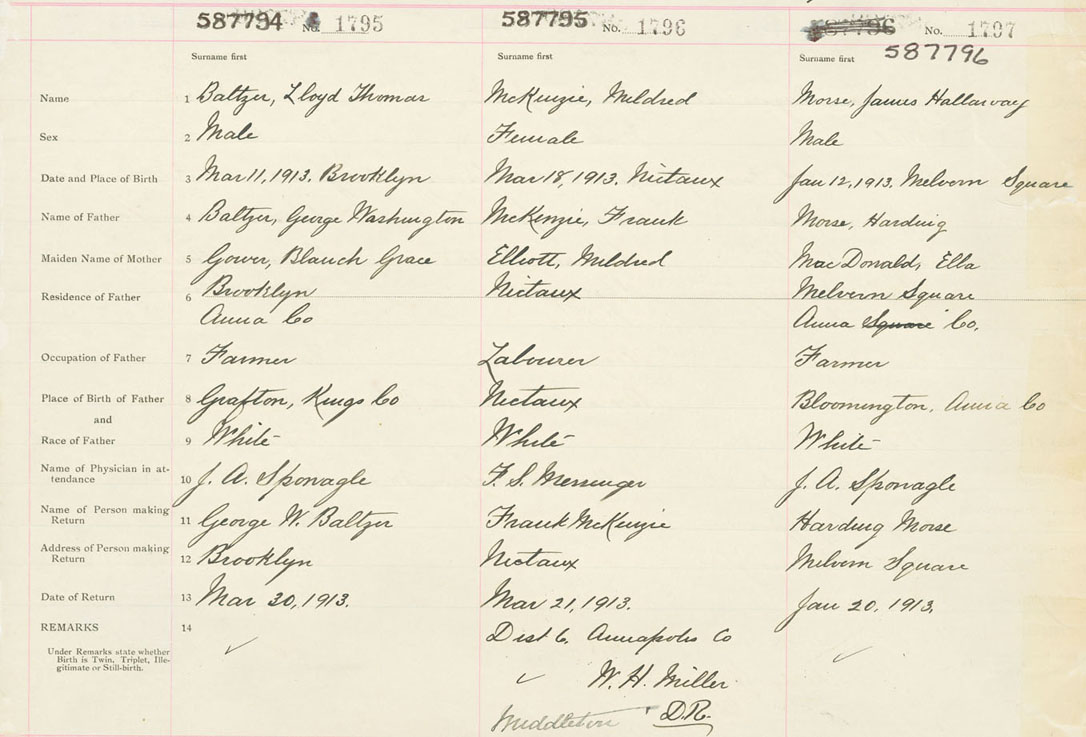 587794 No. 1795 587795 No. 1796 587796 No. 1797
587796
Surname first Surname first Surname first
Name 1 Baltzer, Lloyd Thomas McKenzie, Mildred Morse, James Hallarvay
Sex 2 Male Female Male
Date and Place of Birth 3 Mar 11, 1913. Brooklyn Mar 18, 1913. Nictaux Jan 12, 1913. Melvern Square
Name of Father 4 Baltzer, George Washington McKenzie, Frank Morse, Harding
Maiden Name of Mother 5 Gower, Blanch Grace Elliott, Mildred MacDonald, Ella
Residence of Father 6 Brooklyn Nictaux Melvern Square
Anna Co Anna Square Co.
Occupation of Father 7 Farmer Labourer Farmer
Place of Birth of Father 8 Grafton, Kings Co Nictaux Bloomington, Anna Co
and
Race of Father 9 White White White
Name of Physician in at-
tendance 10 J. A. Sponagle F. S. Messenger J. A. Sponagle
Name of Person making
Return 11 George W. Baltzer Frank McKenzie Harding Morse
Address of Person making
Return 12 Brooklyn Nictaux Melvern Square
Date of Return 13 Mar 30, 1913. Mar 21, 1913. Jan 20, 1913.
REMARKS 14 Dist 6. Annapolis Co
Under Remarks state whether
Birth is Twin, Triplet, Ille-
gitimate or Still-birth.
W. H. Miller
Middleton D.R.